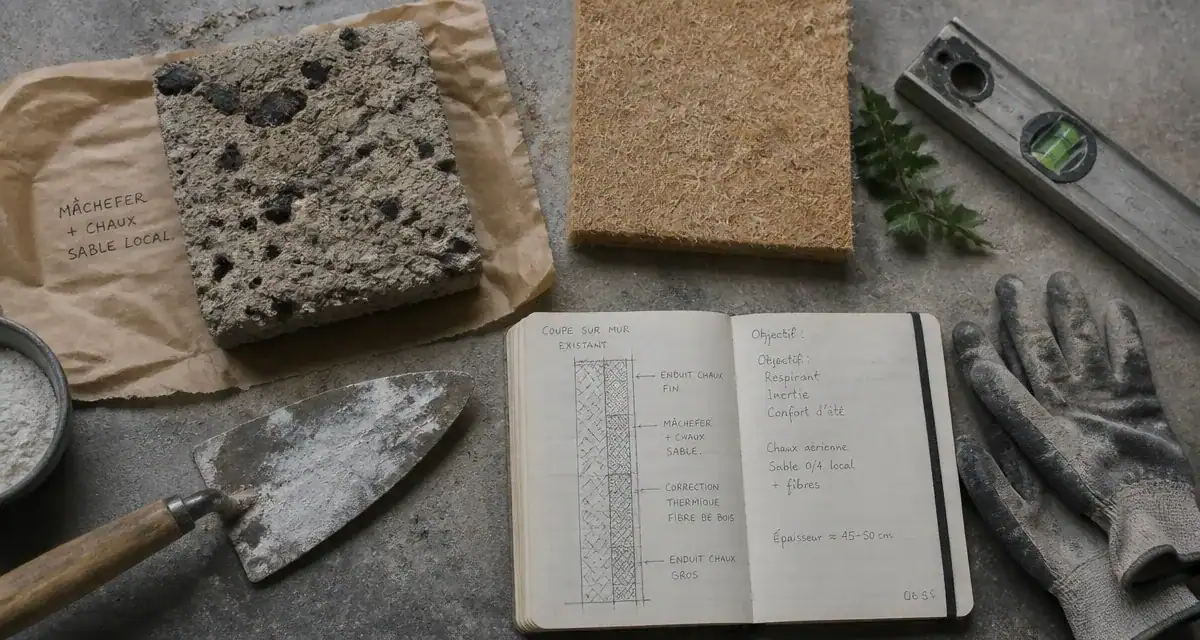 MÂCHEFER
+ CHAUX
SABLE LOCAL.
COUPE SUR MUR
EXISTANT
ENDUIT CHAUX
FIN
MÂCHEFER
+ CHAUX
SABLE.
CORRECTION
THERMIQUE
FIBRE DE BOIS
ENDUIT CHAUX
GROS
Objectif :
Objectif :
Respirant
Inertie
Confort d'été
Chaux aérienne
Sable 0/4 local
+ fibres
Épaisseur ≈ 45-50 cm